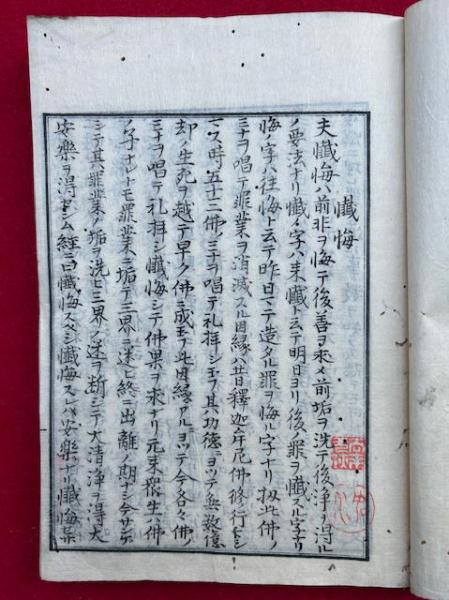 懺悔
夫懺悔ハ前非ヲ悔テ後善ヲ求メ前垢ヲ洗テ後浄ヲ得ル
ノ要法ナリ懺ノ字ハ来懺ト云テ明日ヨリ後ノ罪ヲ懺スル字ナリ
悔ノ字ハ往悔ト云テ昨日マテ造タル罪ヲ悔ル字ナリ扨此佛ノ
ミナヲ唱テ罪業ヲ消滅スル因縁ハ昔日釋迦牟尼佛修行
玉フ時五十三佛ノミナヲ唱テ礼拝シ玉フ其功德ニヨツテ無数億
却ノ生死ヲ越テ早ク佛ニ成玉フ此因縁アルニヨツテ今各々佛ノ
ミナヲ唱テ礼拝シ懺悔シテ佛果ヲ求ムナリ元来衆生ハ佛
ノ子ナレトモ罪業ノ垢テ三界ニ迷ヒ終ニ出離ノ期ナシ今
シテ其罪業ノ垢ヲ洗ヒ三界ノ迷ヲ断シテ大清浄ヲ得大
安樂ヲ得セシム経ニ曰懺悔スヘシ懺悔スレハ安樂ナリ懺悔